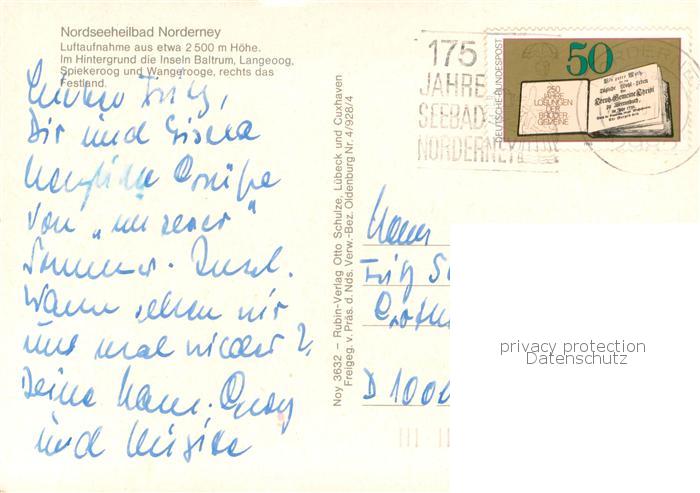 Nordseeheilbad Norderney
Luftaufnahme aus etwa 2 500 m Höhe.
Im Hintergrund die Inseln Baltrum, Langeoog,
Spiekeroog und Wangerooge, rechts das
Festland.
Lieber Fritz,
Dir und Gisela
herzliche Grüße
von „unserer"
Sommer-Insel.
Wann sehen wir
uns mal wieder?
Deine Hans-Georg
und
Noy 3632 – Rubin-Verlag Otto Schulze, Lübeck und Cuxhaven
Freigeg. v. Präs. d. Nds. Verw.-Bez. Oldenburg Nr. 4/928/4
175
JAHRE
SEEBAD
NORDERNEY
DEUTSCHE BUNDESPOST
50
250
JAHRE
LOSUNGEN
DER
BRÜDER-
GEMEINE
Herrn
Fritz
D 1000
privacy protection
Datenschutz